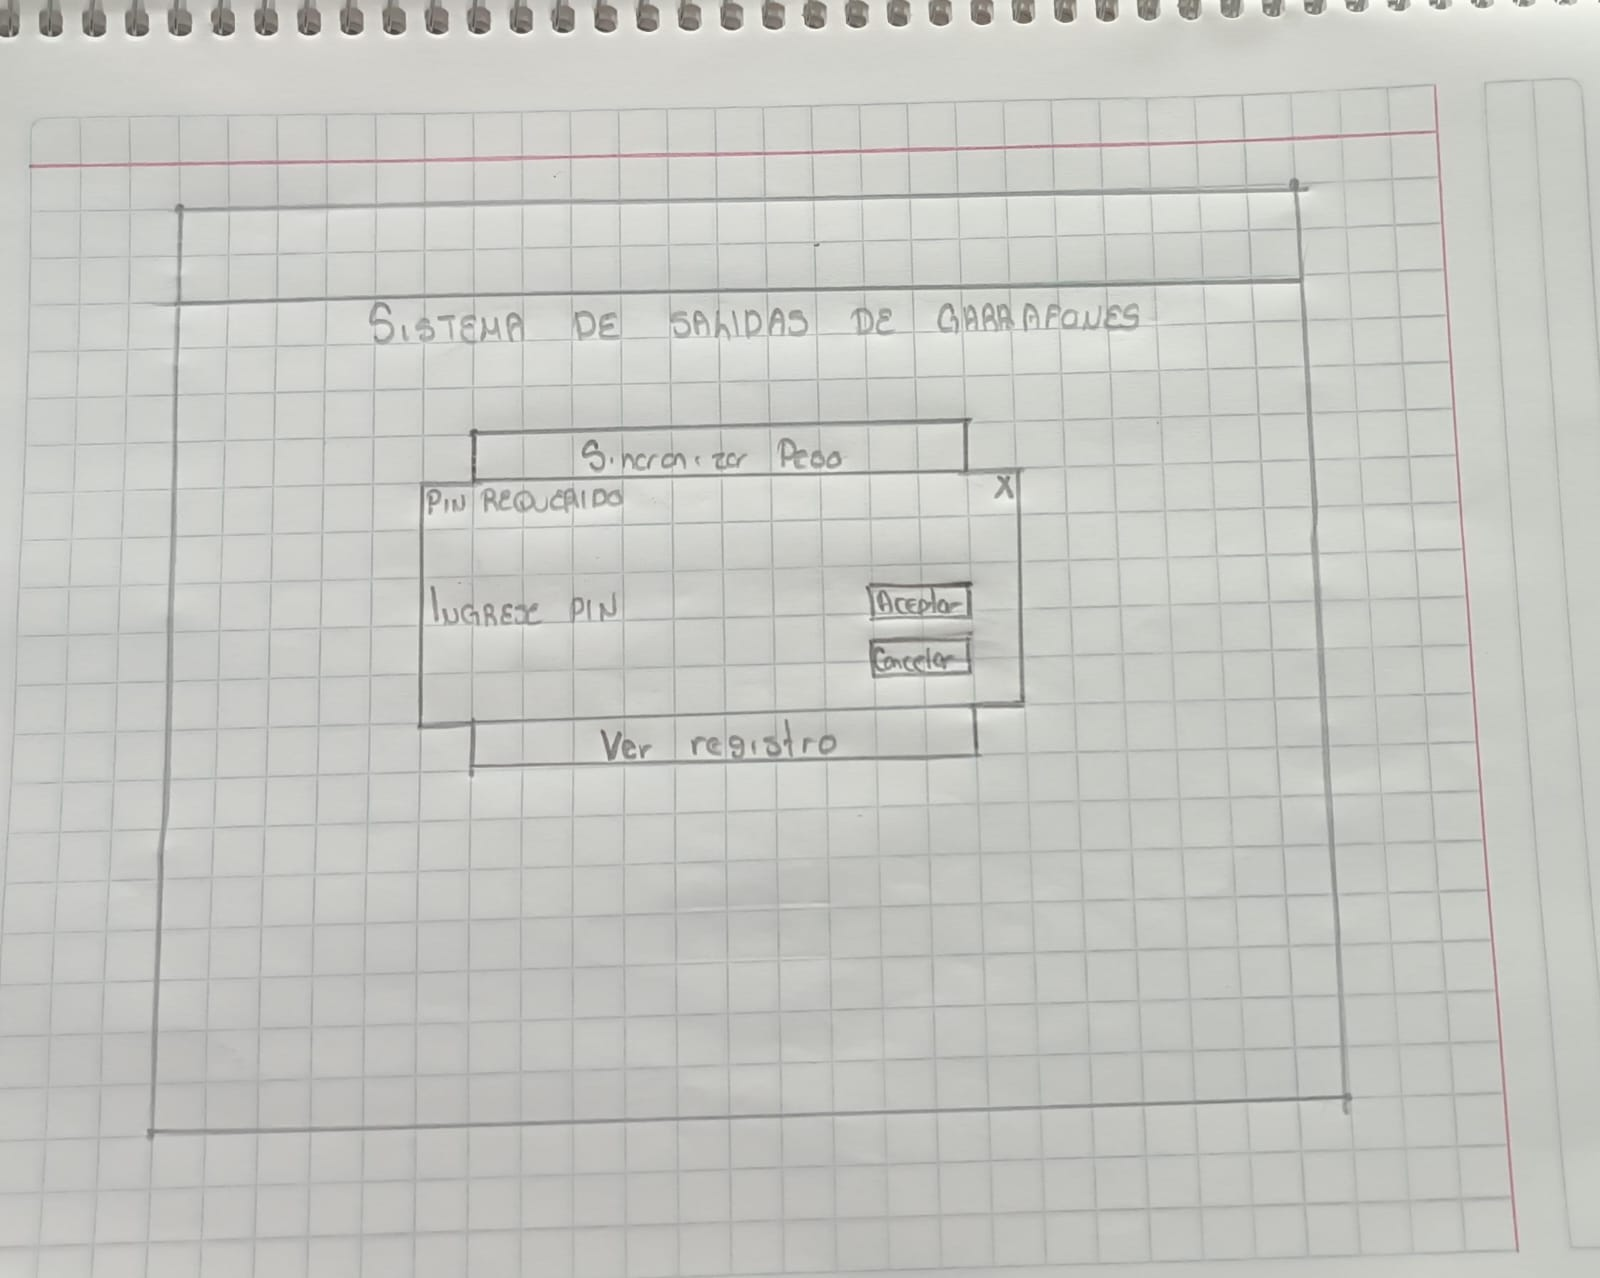 SISTEMA DE SALIDAS DE GARRAFONES
Sincronizar Peso
PIN REQUERIDO X
INGRESE PIN Aceptar
Cancelar
Ver registro